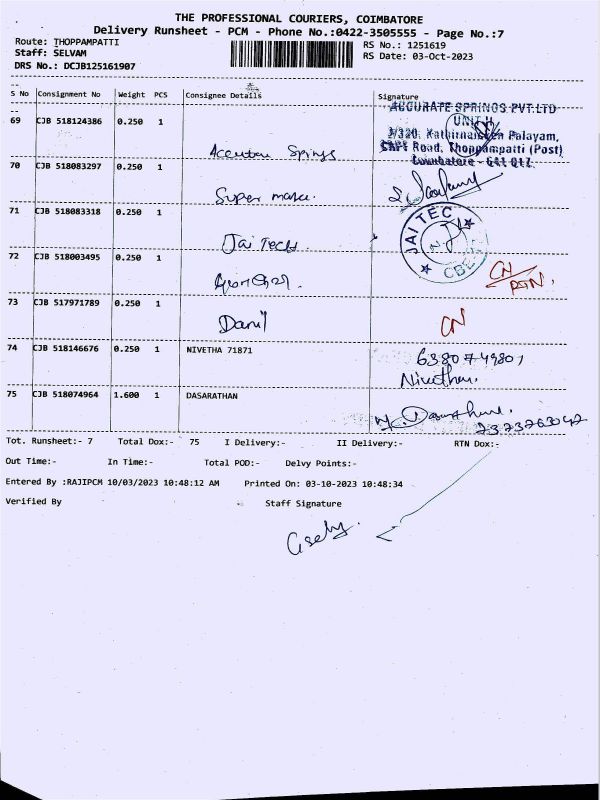 THE PROFESSIONAL COURIERS, COIMBATORE
Delivery Runsheet - PCM - Phone No.:0422-3505555 - Page No.:7
Route: THOPPAMPATTI
Staff: SELVAM
DRS No.: DCJB125161907
RS No.: 1251619
RS Date: 03-Oct-2023
S No Consignment No Weight PCS Consignee Details Signature
69 CJB 518124386 0.250 1
Accurate Springs
ACCURATE SPRINGS PVT.LTD
UNIT-II
3/320, Kathirnaicken Palayam,
CRPF Road, Thoppampatti (Post)
Coimbatore - 641 017.
70 CJB 518083297 0.250 1
Super
71 CJB 518083318 0.250 1
Jai Tech
JAI TEC
CBE-17
72 CJB 518003495 0.250 1
CN
RTN.
73 CJB 517971789 0.250 1
CN
74 CJB 518146676 0.250 1 NIVETHA 71871
6380749801
Nivetha.
75 CJB 518074964 1.600 1 DASARATHAN
7373763042
Tot. Runsheet:- 7 Total Dox:- 75 I Delivery:- II Delivery:- RTN Dox:-
Out Time:- In Time:- Total POD:- Delvy Points:-
Entered By :RAJIPCM 10/03/2023 10:48:12 AM Printed On: 03-10-2023 10:48:34
Verified By Staff Signature